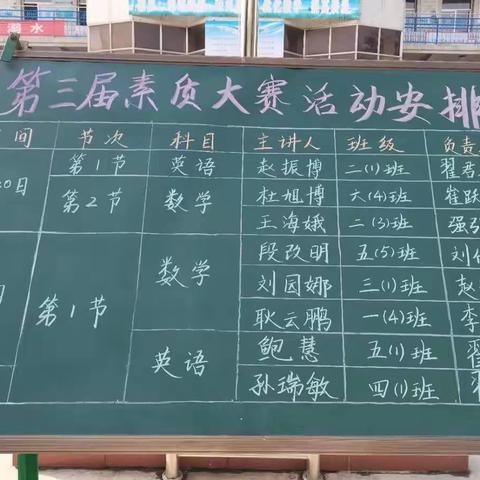 第三届素质大赛活动安排
间 节次 科目 主讲人 班级 负责
0日 第1节 英语 赵振博 二(1)班 翟君
第2节 数学 杜旭博 六(4)班 崔跃
王海娥 二(3)班 强强
日 第1节 数学 段改明 五(5)班 刘
刘园娜 三(1)班 赵
耿云鹏 一(4)班 李
英语 鲍慧 五(1)班 翟
孙瑞敏 四(1)班